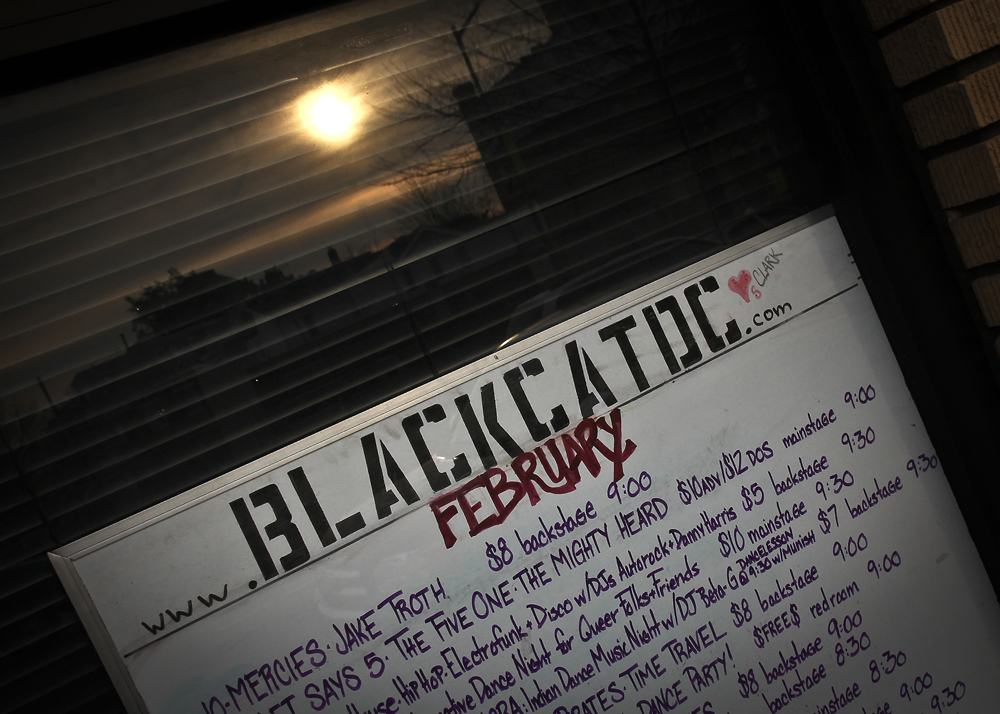 www.BLACKCATDC.com
♥ S CLARK
FEBRUARY
MERCIES · JAKE TROTH $8 backstage 9:00
SAYS 5 · THE FIVE ONE · THE MIGHTY HEARD $10ADV/$12DOS mainstage 9:00
House · Hip Hop · Electrofunk + Disco w/DJs Autorock + Danny Harris $5 backstage 9:30
Dance Night for Queer Folks + Friends $10 mainstage 9:30
Indian Dance Music Night w/ DJ Beta-G DANCE LESSON @ 9:30 w/ Munish $7 backstage 9:30
TIME TRAVEL $8 backstage 9:00
DANCE PARTY! $FREE$ redroom 9:00
$8 backstage 9:00
backstage 8:30
mainstage 8:30
9:00
9:30